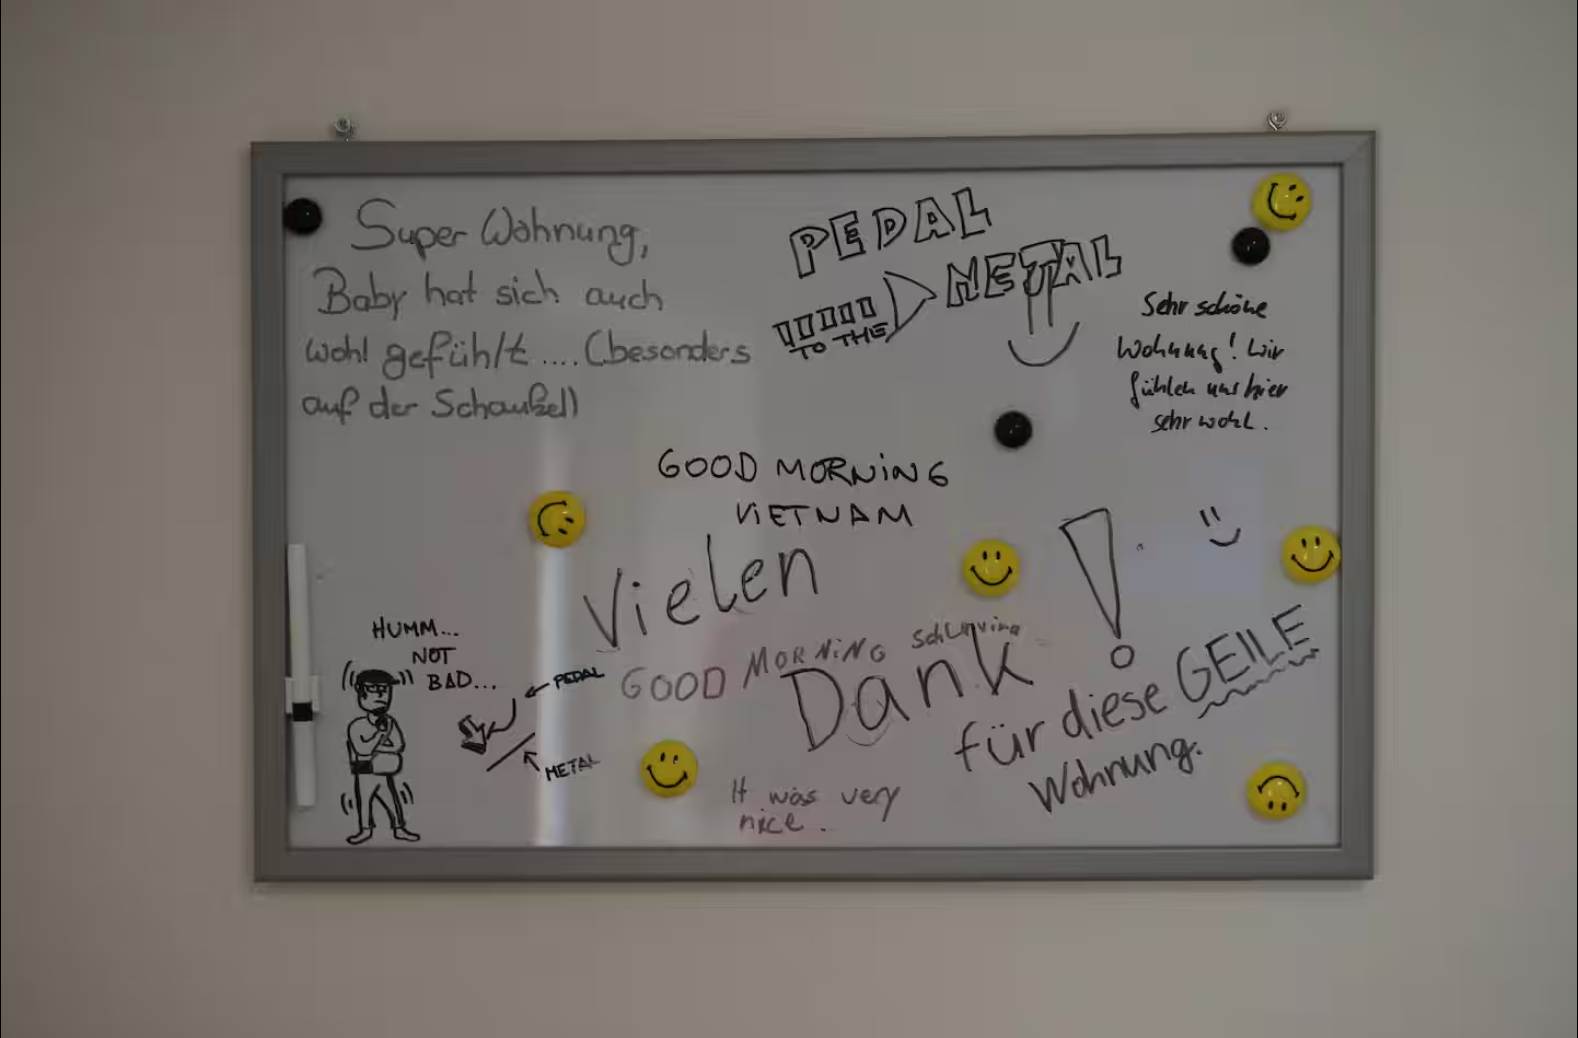 Super Wohnung,
Baby hat sich auch
wohl gefühlt .... (besonders
auf der Schaukel)
PEDAL
TO THE
METAL
Sehr schöne
Wohnung! Wir
fühlen uns hier
sehr wohl.
GOOD MORNiNG
ViETNAM
Vielen
Dank !
für diese GEILE
Wohnung.
GOOD MORNiNG
HUMM...
NOT
BAD...
PEDAL
METAL
It was very
nice.